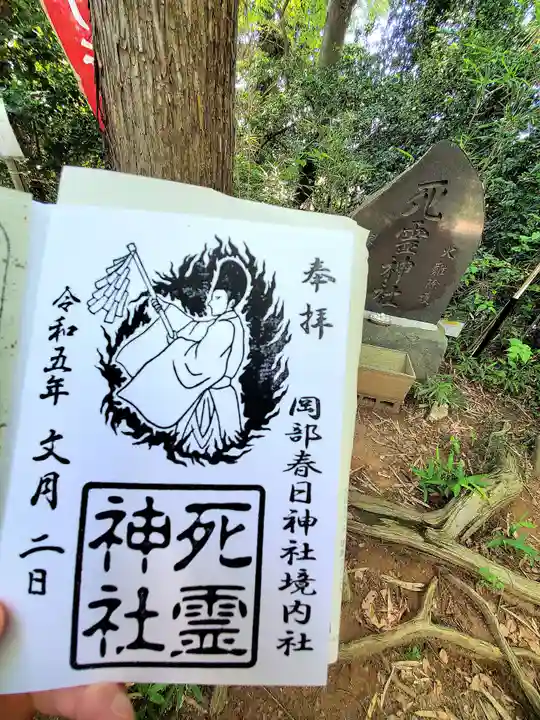 奉拝
岡部春日神社境内社
死霊
神社
令和五年 文月 二日
死霊神社
火難除護